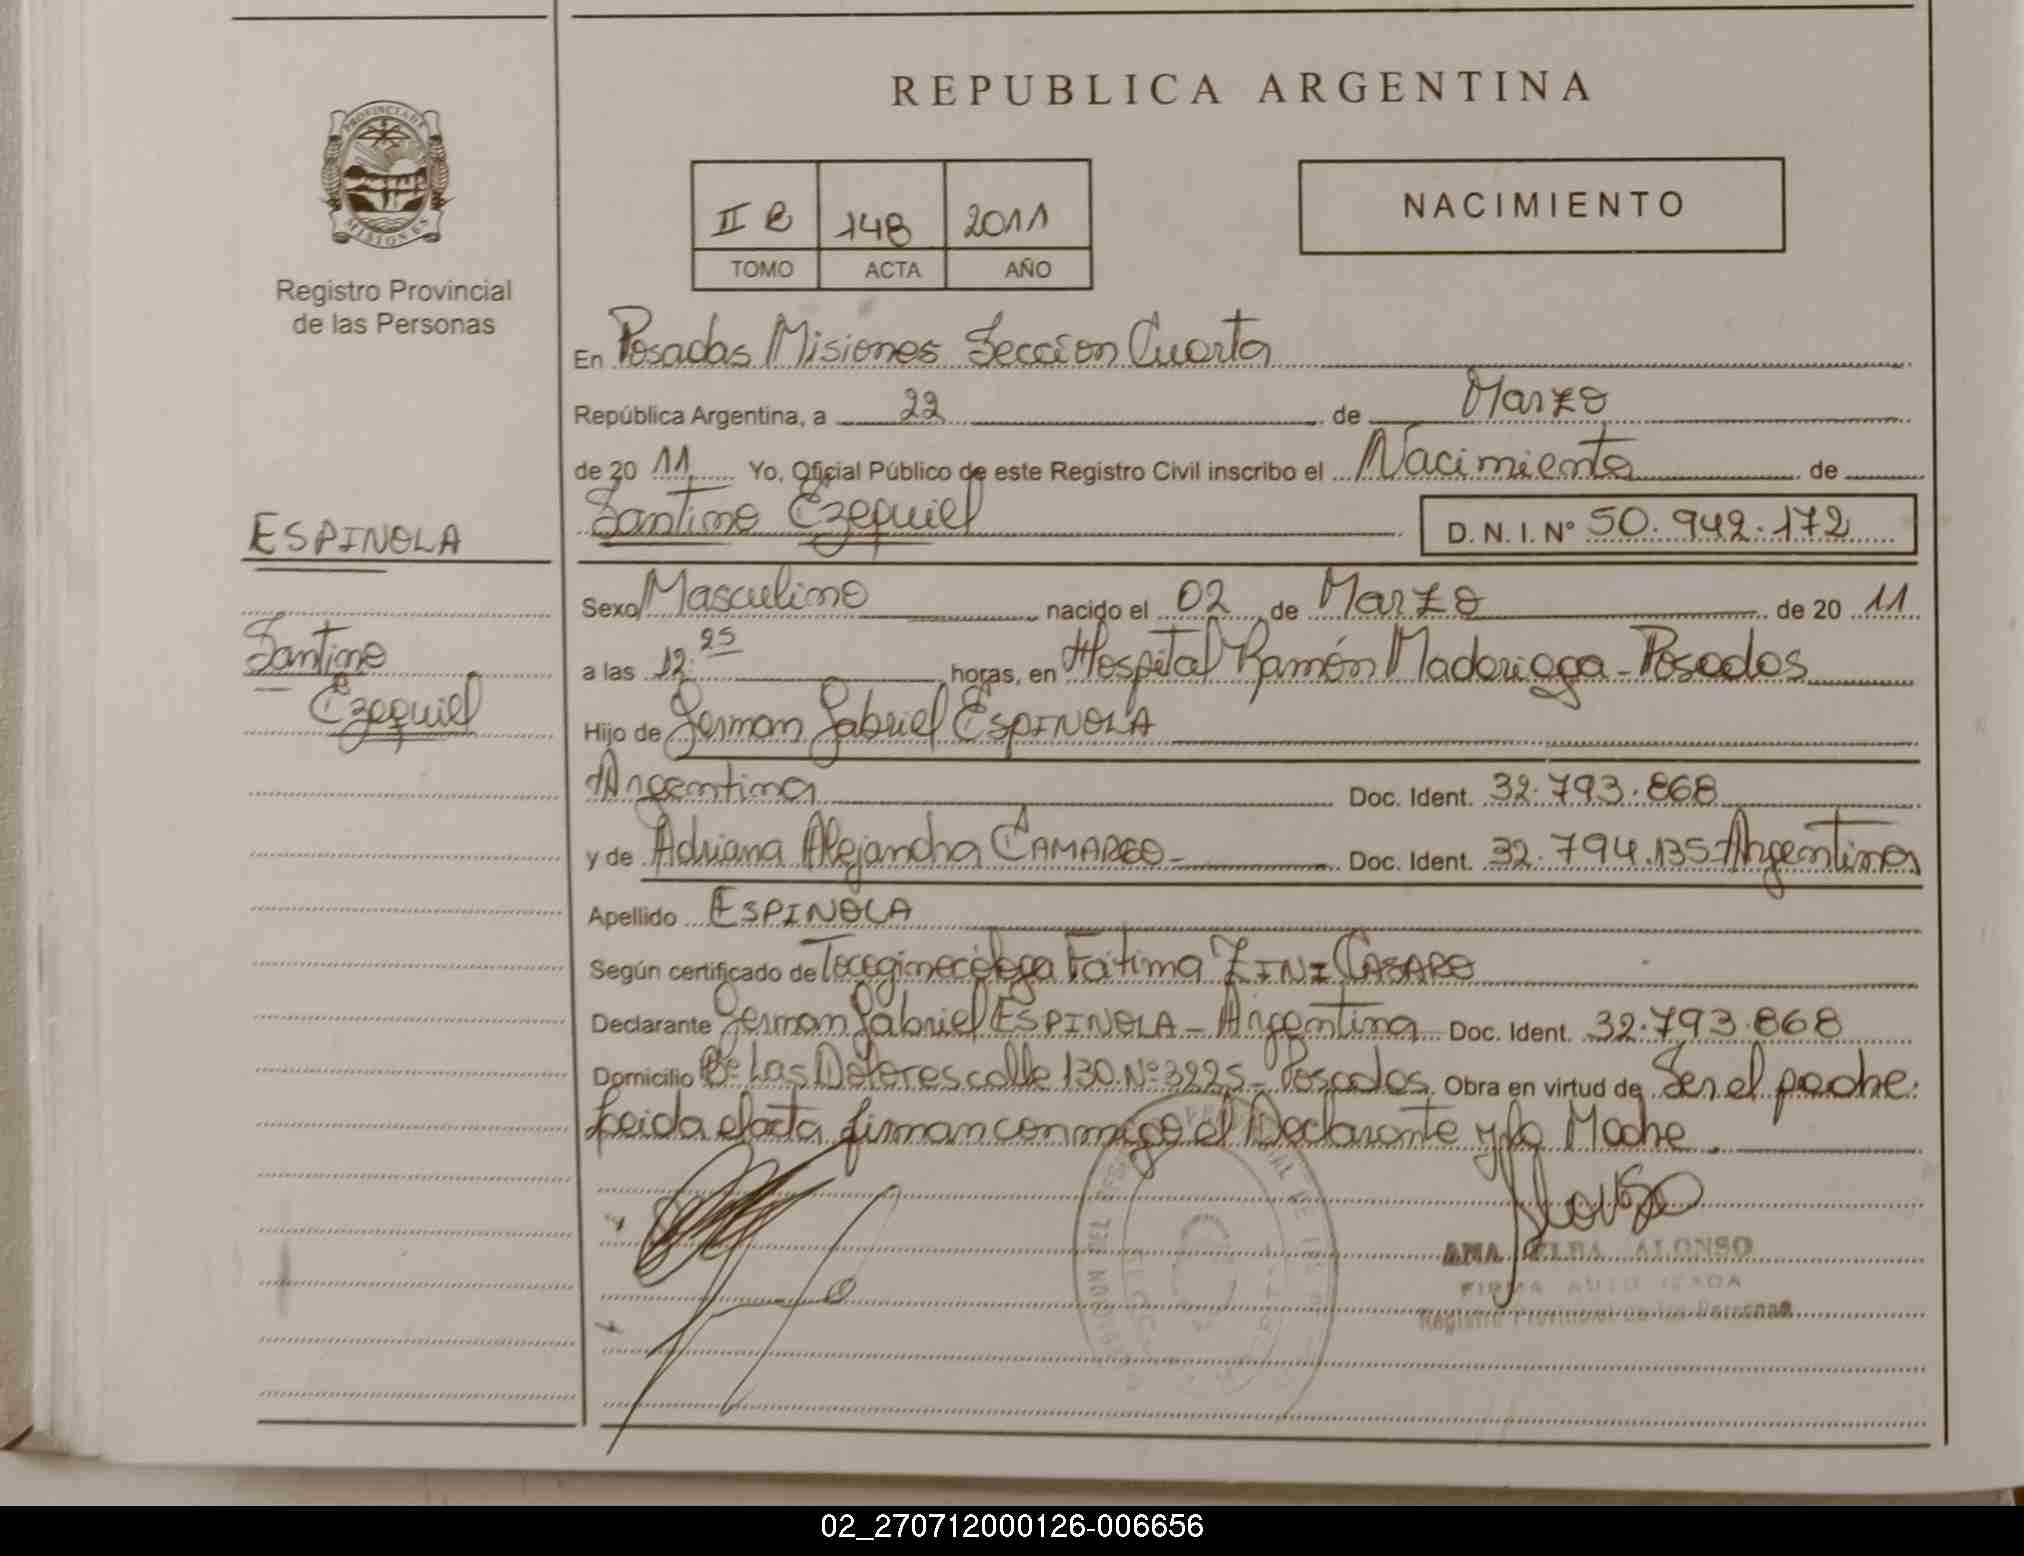 REPUBLICA ARGENTINA
PROVINCIA DE
MISIONES
Registro Provincial
de las Personas
II B 148 2011
TOMO ACTA AÑO
NACIMIENTO
En Posadas Misiones Seccion Cuarta
República Argentina, a 22 de Marzo
de 20 11 Yo, Oficial Público de este Registro Civil inscribo el Nacimiento de
Santino Ezequiel D. N. I. Nº 50.942.172
ESPINOLA
Santino
Ezequiel
Sexo Masculino nacido el 02 de Marzo de 20 11
a las 12.25 horas, en Hospital Ramón Madariaga - Posadas
Hijo de German Gabriel ESPINOLA
Argentina Doc. Ident. 32.793.868
y de Adriana Alejandra CAMARGO - Doc. Ident. 32.794.135 Argentina
Apellido ESPINOLA
Según certificado de Tocoginecóloga Fátima ZINI CASARO
Declarante German Gabriel ESPINOLA - Argentina Doc. Ident. 32.793.868
Domicilio Bº Las Dolores calle 130 Nº 3225 - Posadas Obra en virtud de Ser el padre.
Leida el acta firman conmigo el Declarante y la Madre.
ANA ELBA ALONSO
FIRMA AUTORIZADA
Registro Provincial de las Personas
02_270712000126-006656